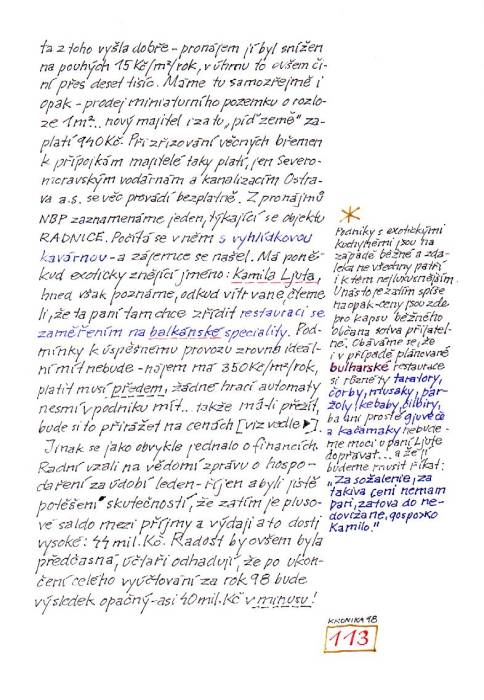 ta z toho vyšla dobře - pronájem jí byl snížen
na pouhých 15 Kč/m²/rok, v úhrnu to ovšem či-
ní přes deset tisíc. Máme tu samozřejmě i
opak - prodej miniaturního pozemku o rozlo-
ze 1m²... nový majitel i za tu „píď země" za-
platí 940 Kč. Při zřizování věcných břemen
k přípojkám majitelé taky platí, jen Severo-
moravským vodárnám a kanalizacím Ostra-
va a.s. se věc provádí bezplatně. Z pronájmů
NBP zaznamenáme jeden, týkající se objektu
RADNICE. Počítá se v něm s vyhlídkovou
kavárnou - a zájemce se našel. Má poně-
kud exoticky znějící jméno: Kamila Ljuta,
hned však poznáme, odkud vítr vane, čteme
li, že ta paní tam chce zřídit restauraci se
zaměřením na balkánské speciality. Pod-
mínky k úspěšnému provozu zrovna ideál-
ní mít nebude - nájem má 350 Kč/m²/rok,
platit musí předem, žádné hrací automaty
nesmí v podniku mít... takže má-li přežít,
bude si to přirážet na cenách [viz vedle ►].
Jinak se jako obvykle jednalo o financích.
Radní vzali na vědomí zprávu o hospo-
daření za údobí leden-říjen a byli jistě
potěšeni skutečností, že zatím je pluso-
vé saldo mezi příjmy a výdaji a to dosti
vysoké: 44 mil. Kč. Radost by ovšem byla
předčasná, účtaři odhadují, že po ukon-
čení celého vyúčtování za rok 98 bude
výsledek opačný - asi 40 mil. Kč v minusu!
*
Podniky s exotickými
kuchyněmi jsou na
západě běžné a zda-
leka ne všechny patří
i k těm nejluxusnějším.
U nás to je zatím spíše
naopak - ceny jsou zde
pro kapsu běžného
občana sotva přijatel-
né. Obáváme se, že
i v případě plánované
bulharské restaurace
si různé ty taratory,
čorby, musaky, bar-
žoly, kebaby, šilbiry,
ba ani prosté gjuveče
a kačamaky nebude-
me moci u paní Ljute
dopřávat... a že jí
budeme muset říkat:
„Za sožalenie, za
takiva ceni nemam
pari, zatova do ne-
dovižane, gospožo
Kamilo."
KRONIKA 98
113